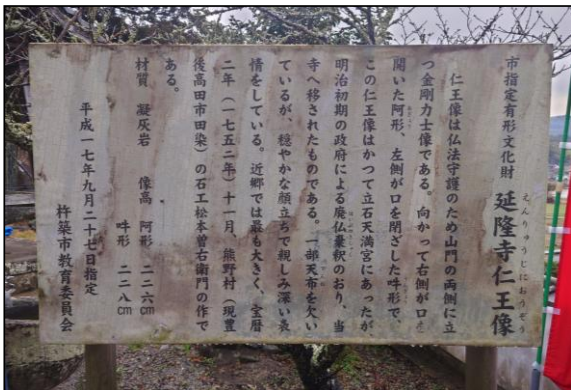 市指定有形文化財
延隆寺仁王像
えんりゅうじにおうぞう
仁王像は仏法守護のため山門の両側に立
つ金剛力士像である。向かって右側が口を
開いた阿形、左側が口を閉ざした吽形で、
この仁王像はかつて立石天満宮にあったが、
明治初期の政府による廃仏棄釈のおり、当
寺へ移されたものである。一部天布を欠い
ているが、穏やかな顔立ちで親しみ深い表
情をしている。近郷では最も大きく、宝暦
二年（一七五二年）十一月、熊野村（現豊
後高田市田染）の石工松本曽右衛門の作で
ある。
材質　凝灰岩　像高　阿形　二二六㎝
吽形　二二八㎝
平成一七年九月二十七日指定
杵築市教育委員会